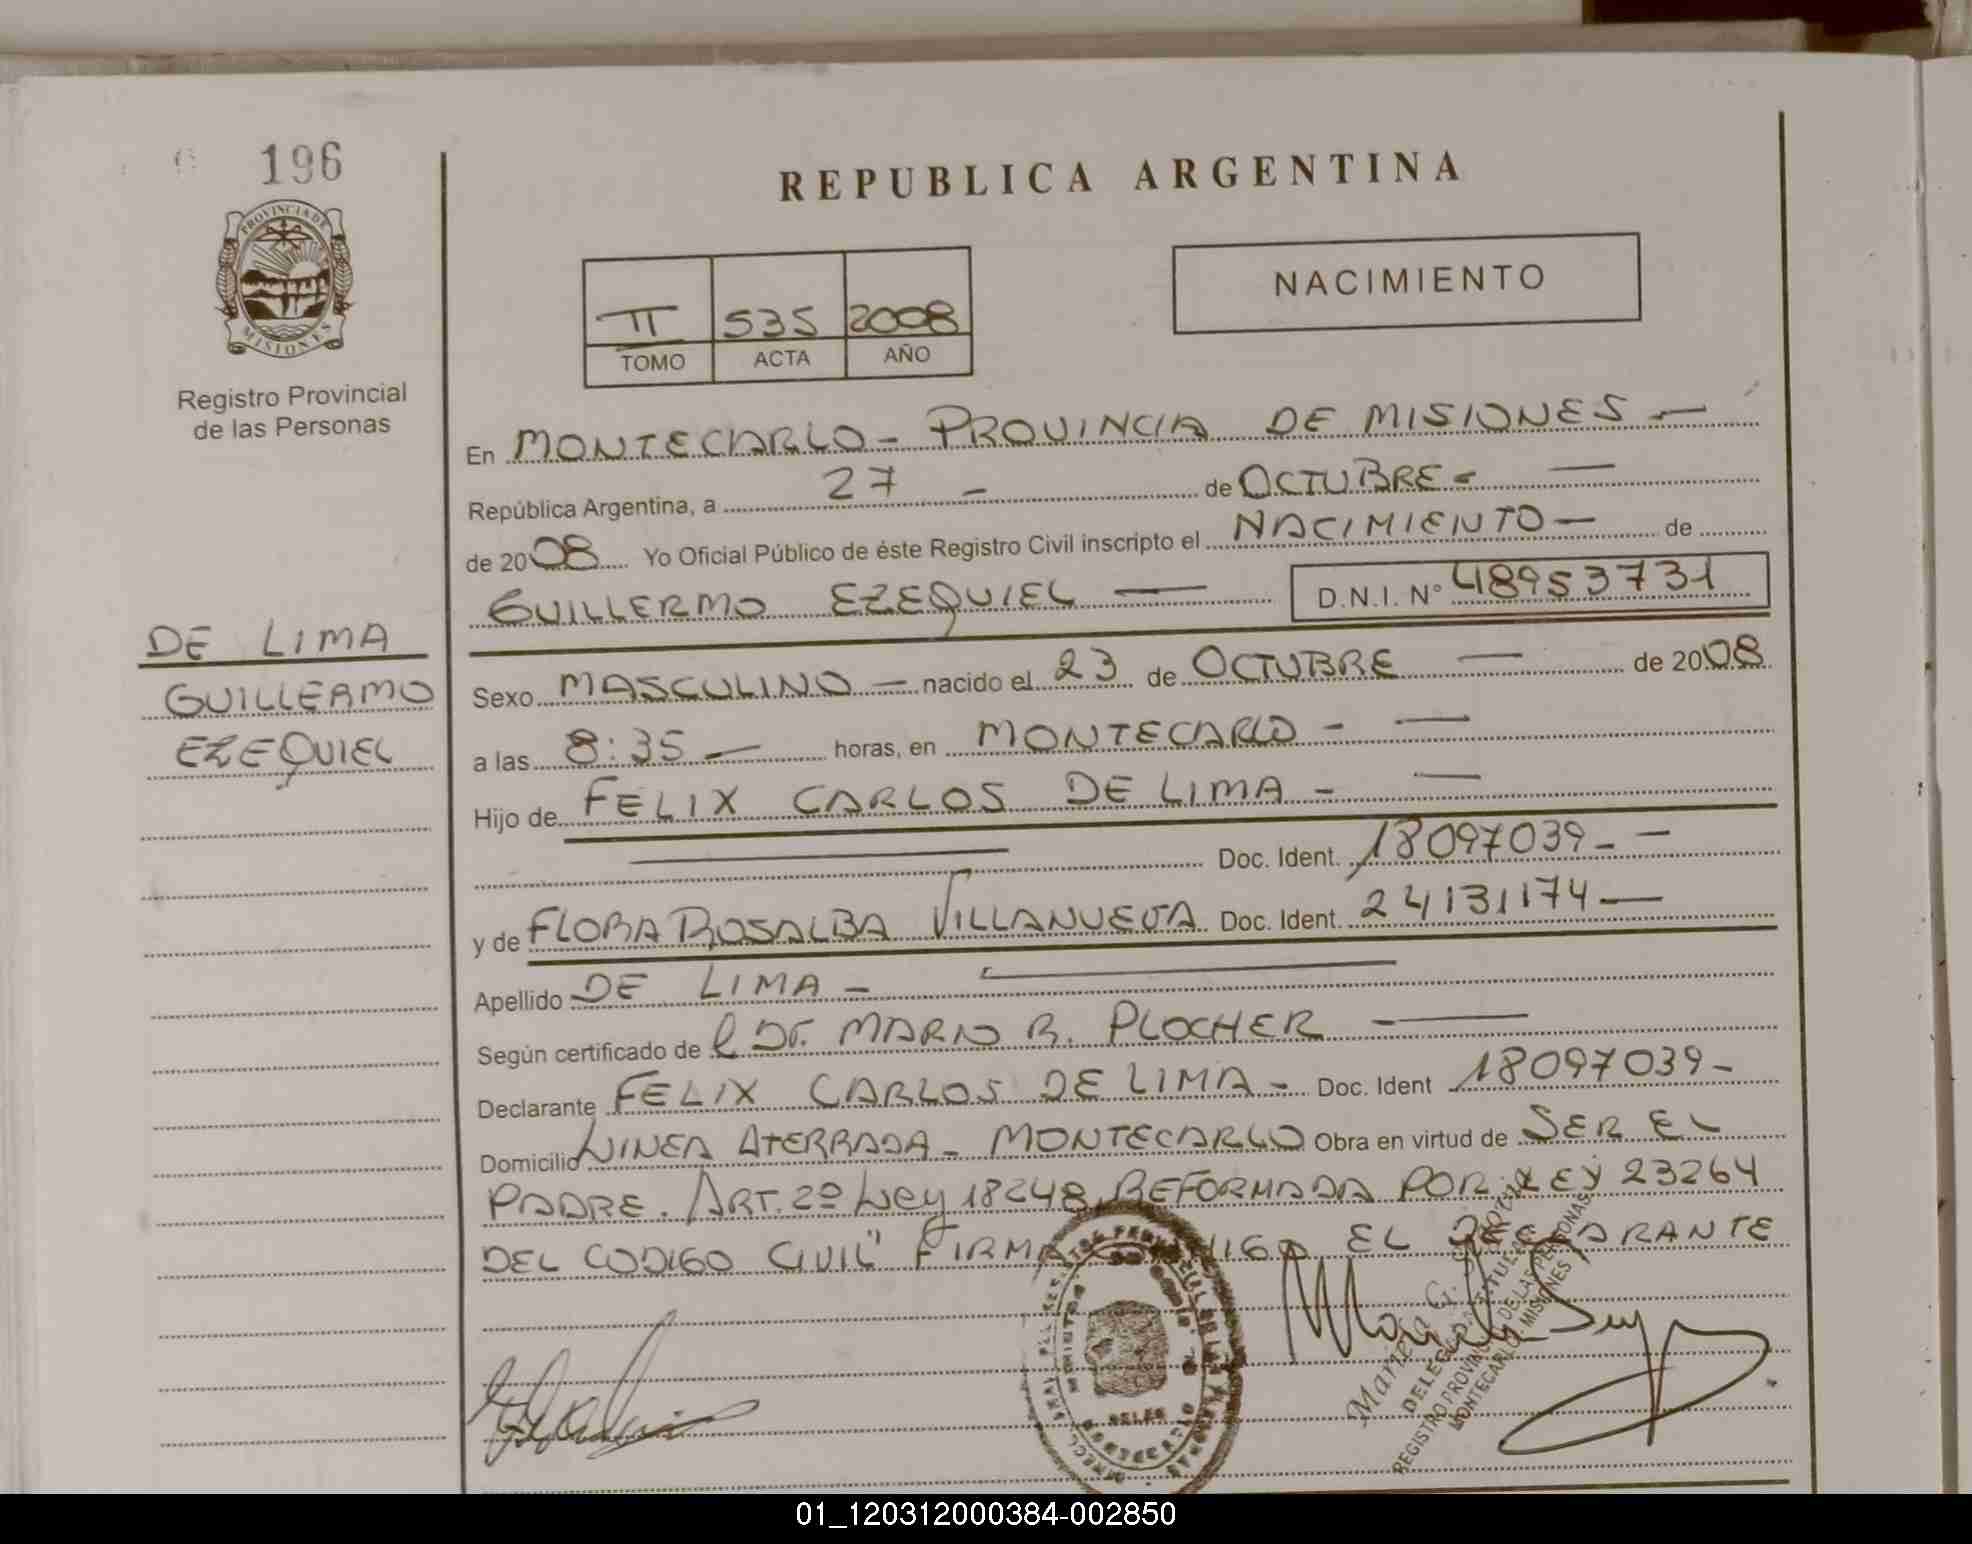 196
PROVINCIA DE
MISIONES
Registro Provincial
de las Personas
DE LIMA
GUILLERMO
EZEQUIEL
REPUBLICA ARGENTINA
II 535 2008
TOMO ACTA AÑO
NACIMIENTO
En MONTECARLO - PROVINCIA DE MISIONES —
República Argentina, a 27 - de OCTUBRE - —
de 2008 Yo Oficial Público de éste Registro Civil inscripto el NACIMIENTO — de
GUILLERMO EZEQUIEL — D.N.I. Nº 48953731
Sexo MASCULINO — nacido el 23 de OCTUBRE — de 2008
a las 8:35 — horas, en MONTECARLO - —
Hijo de FELIX CARLOS DE LIMA - —
— Doc. Ident. 18097039 - —
y de FLORA ROSALBA VILLANUEVA Doc. Ident. 24131174 —
Apellido DE LIMA - —
Según certificado de l DR. MARIO R. PLOCHER —
Declarante FELIX CARLOS DE LIMA - Doc. Ident 18097039 -
Domicilio LINEA ATERRADA - MONTECARLO Obra en virtud de SER EL
PADRE. ART. 2º Ley 18248 REFORMADA POR LEY 23264
DEL CODIGO CIVIL" FIRMA EL DECLARANTE
DELEGADA TITULAR
REGISTRO PROVINCIAL DE LAS PERSONAS
MONTECARLO MISIONES
01_120312000384-002850